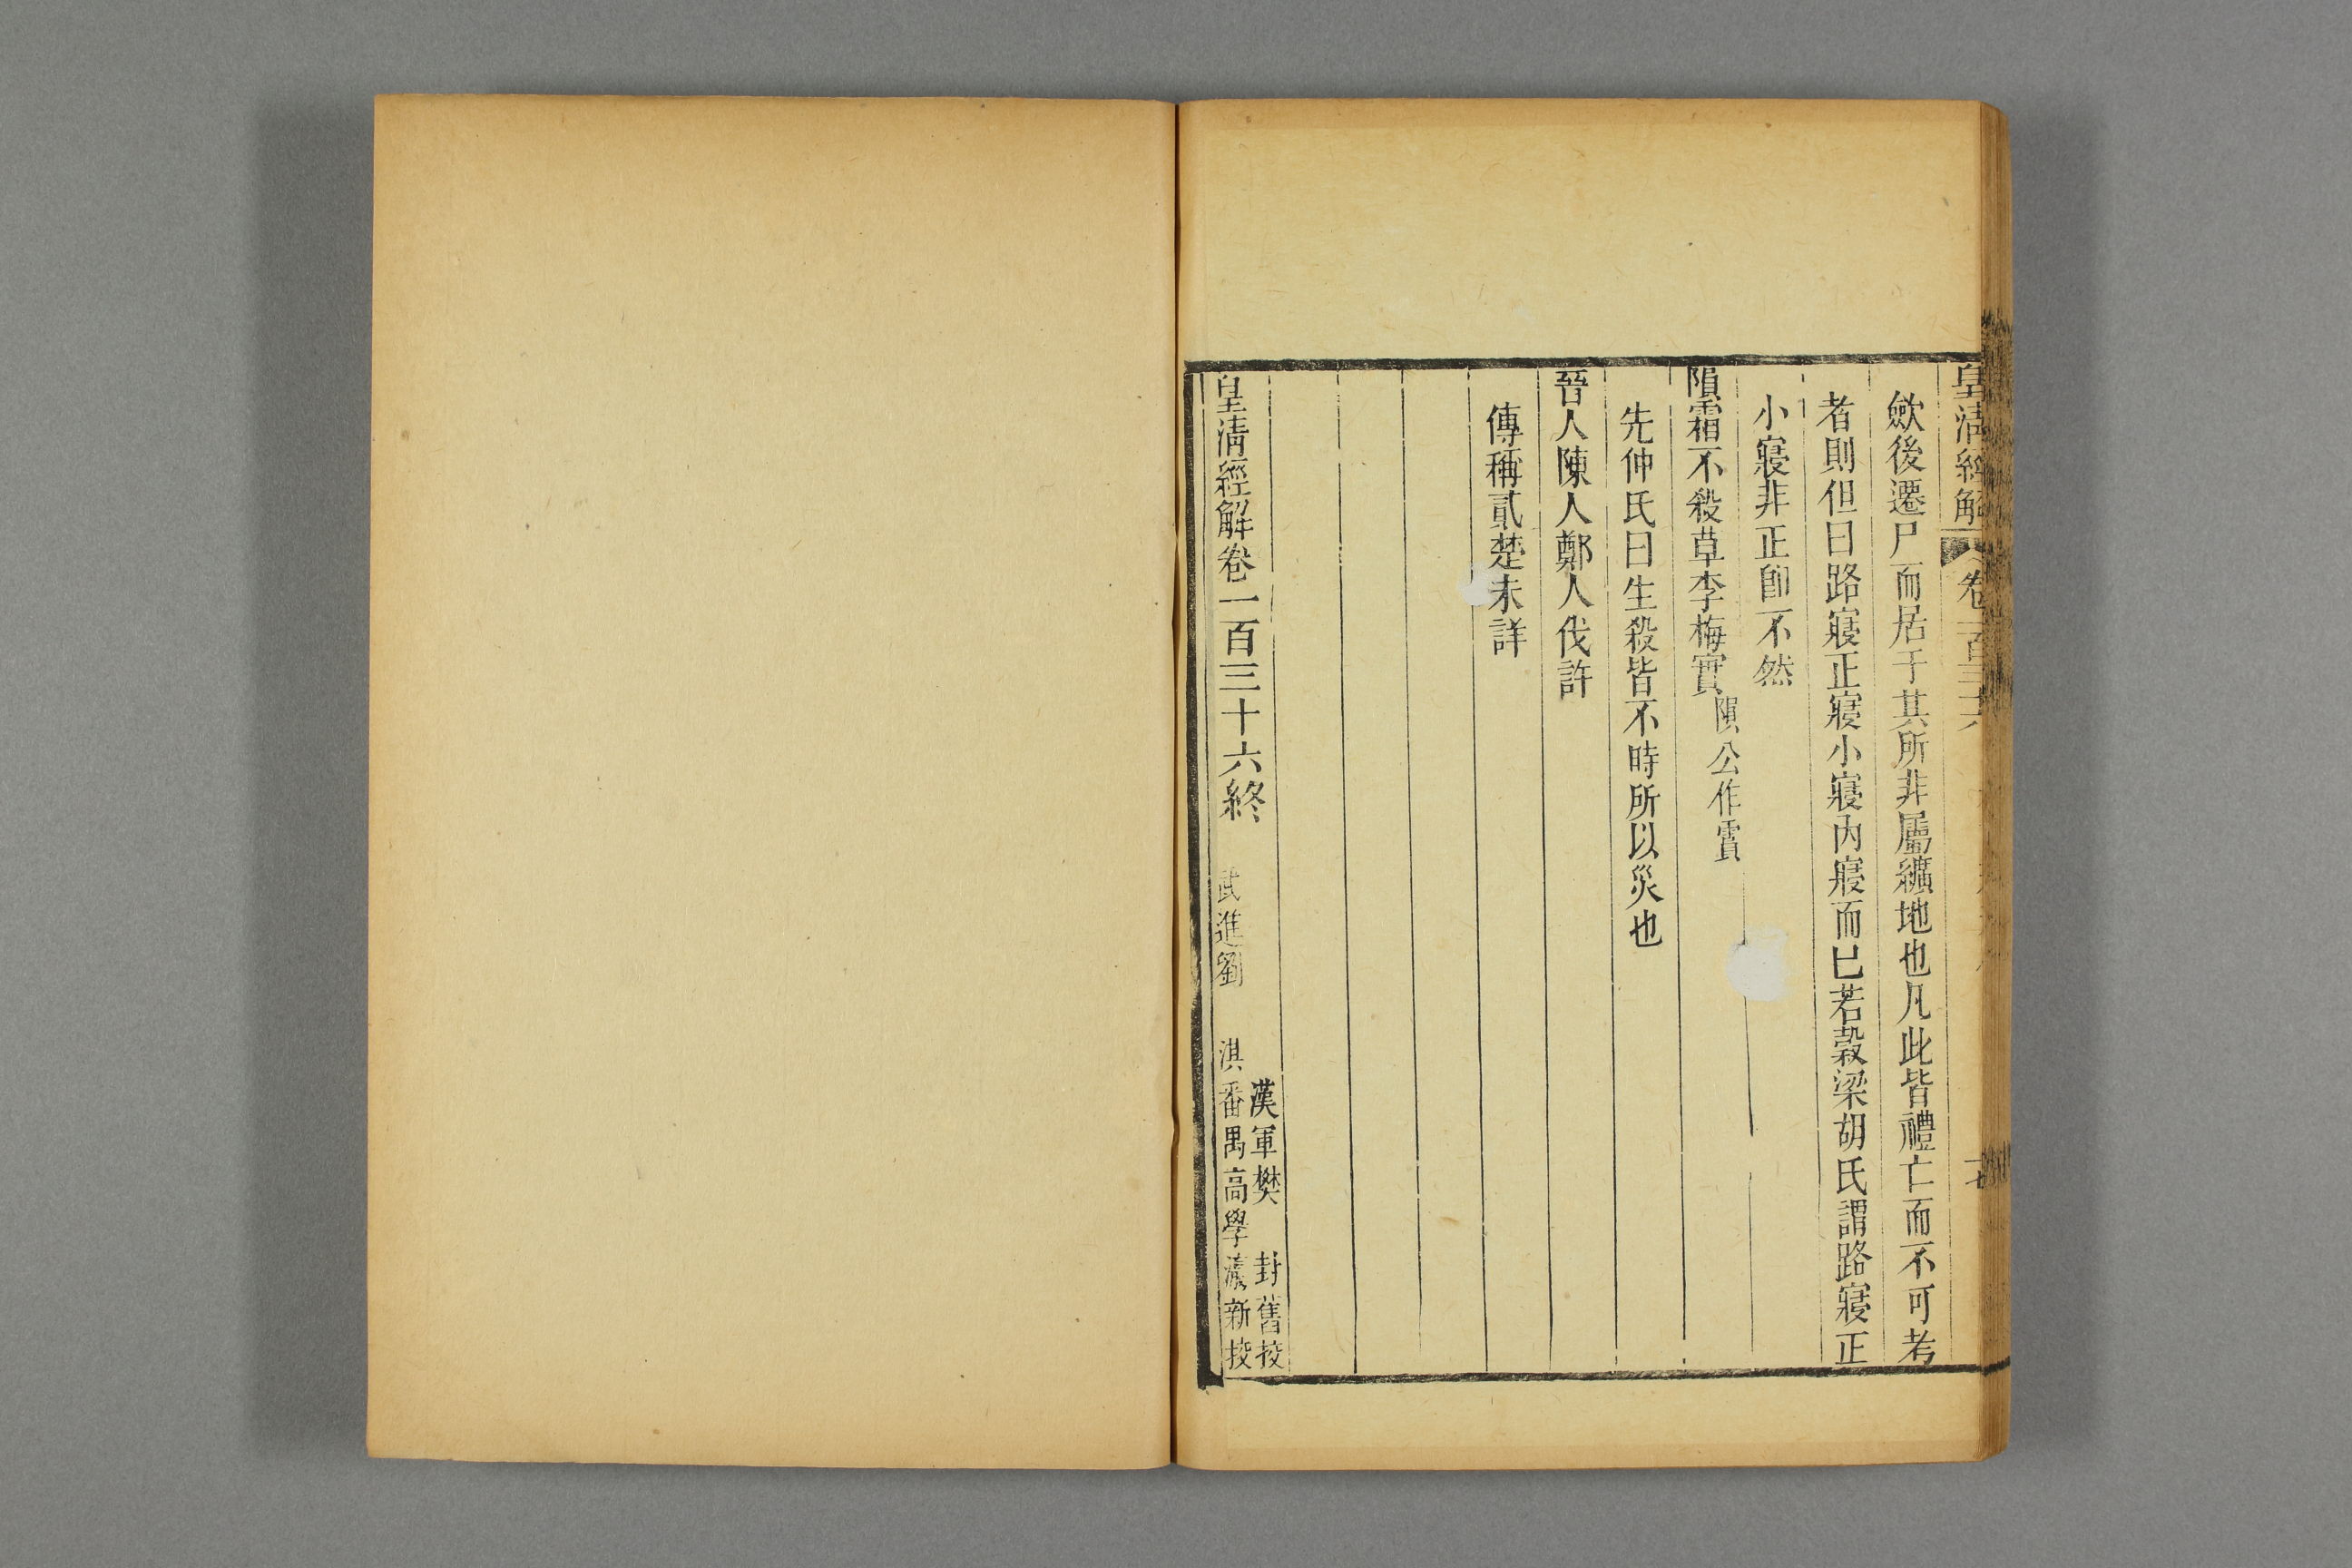 皇清經解 卷一百三十六
歛後遷尸而居于其所非屬纊地也凡此皆禮亡而不可考
者則但曰路寢正寢小寢內寢而已若穀梁胡氏謂路寢正
小寢非正卽不然
隕霜不殺草李梅實 隕公作霣
先仲氏曰生殺皆不時所以災也
晉人陳人鄭人伐許
傳稱貳楚未詳
皇清經解卷一百三十六終
漢軍樊封舊挍
武進劉淇番禺高學瀛新挍